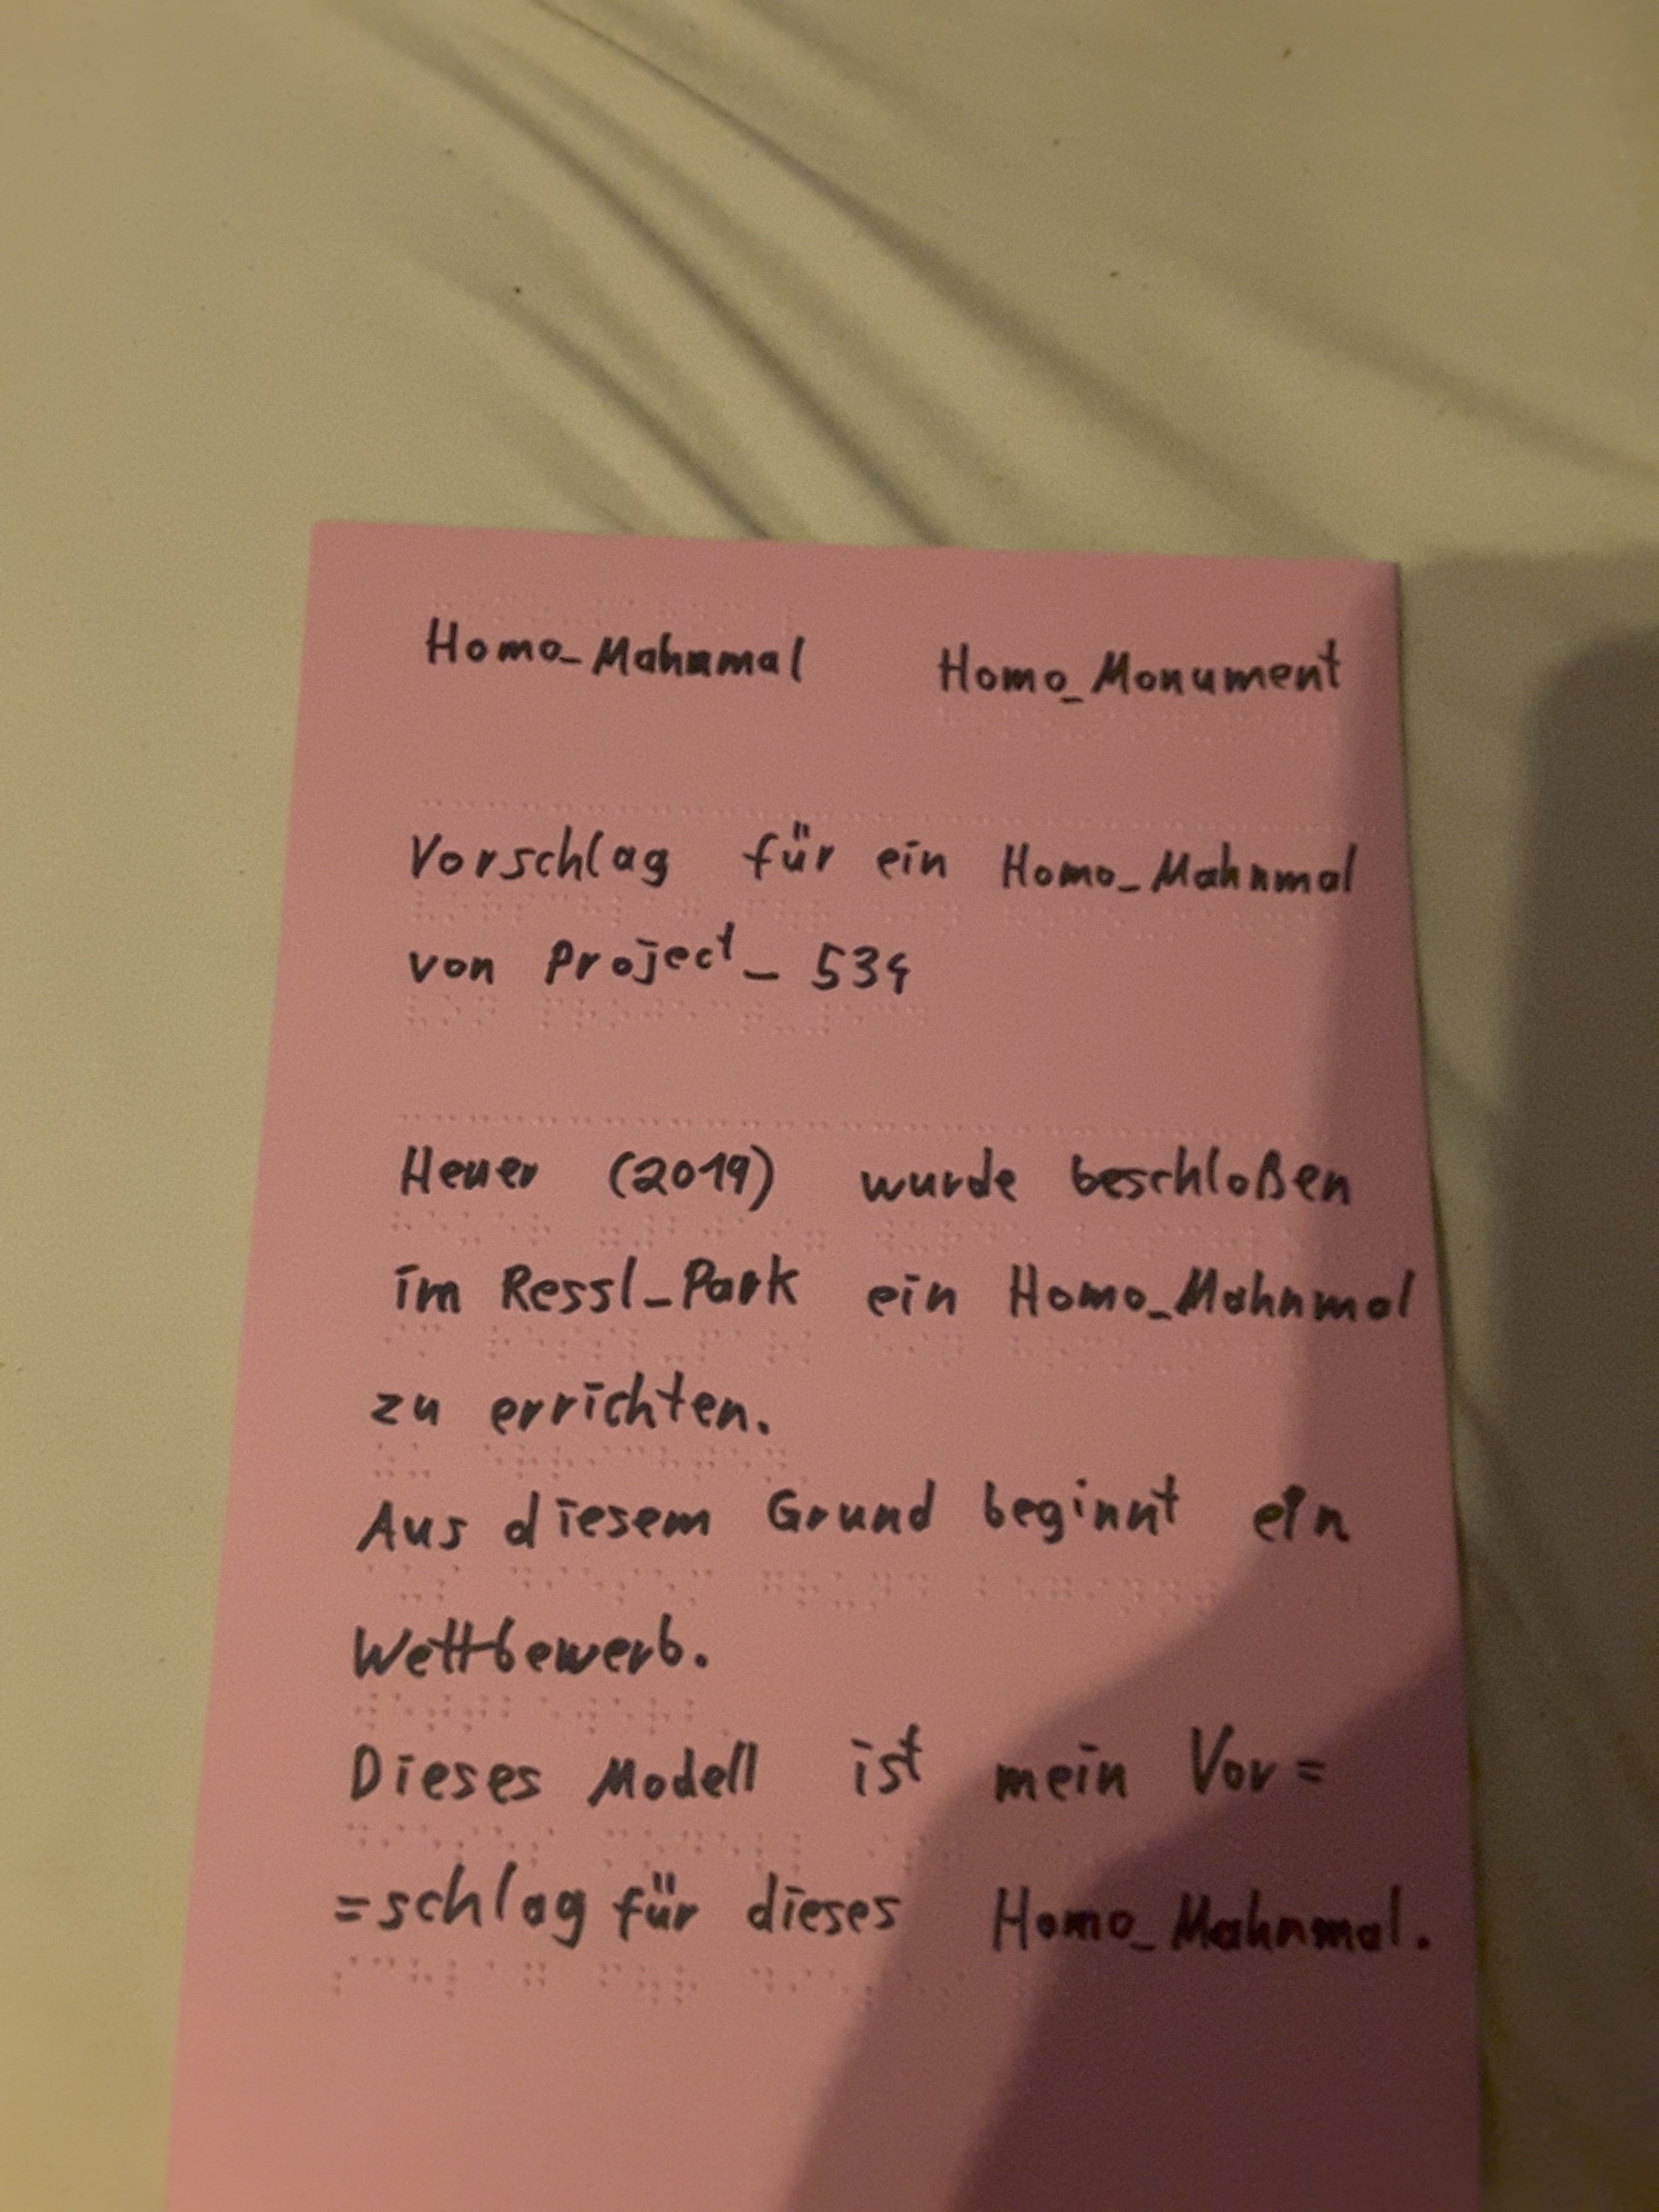 Homo_Mahnmal Homo_Monument
Vorschlag für ein Homo_Mahnmal
von Project_534
Heuer (2019) wurde beschloßen
im Ressl_Park ein Homo_Mahnmal
zu errichten.
Aus diesem Grund beginnt ein
Wettbewerb.
Dieses Modell ist mein Vor=
=schlag für dieses Homo_Mahnmal.